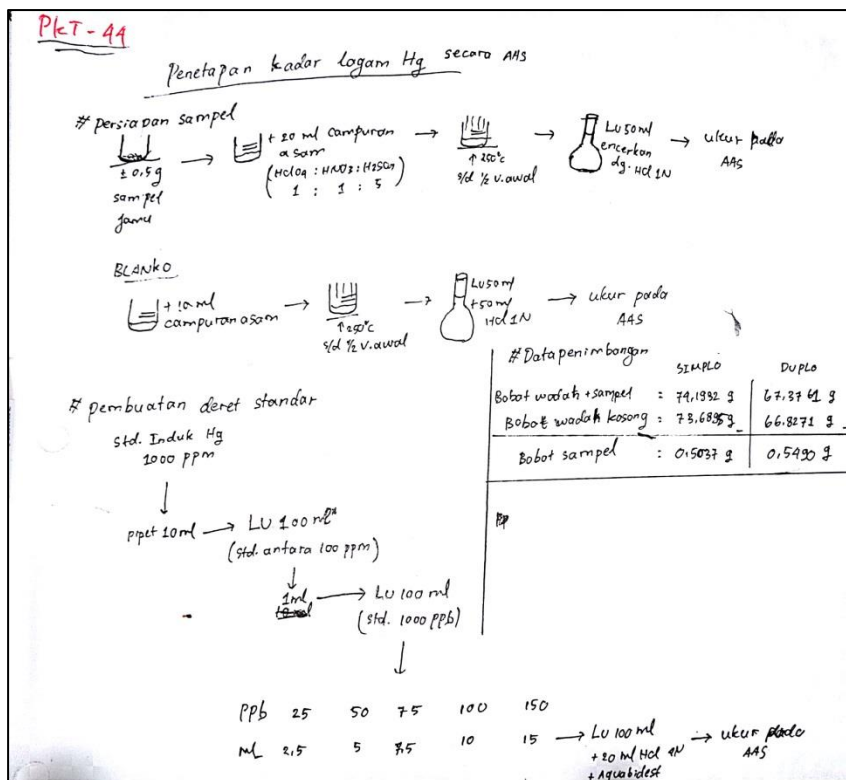 PKT-44
Penetapan kadar logam Hg secara AAS
# Persiapan sampel
± 0,5 g
sampel
jamu
+ 20 ml campuran
asam
(HClO4 : HNO3 : H2SO4
1 : 1 : 5)
↑ 250°C
s/d 1/2 v.awal
LU 50 ml
encerkan
dg. HCl 1N
ukur pada
AAS
BLANKO
+ 10 ml
campuran asam
↑ 250°C
s/d 1/2 v.awal
LU 50 ml
+50 ml
HCl 1N
ukur pada
AAS
# Data penimbangan
SIMPLO DUPLO
Bobot wadah + sampel : 74,1932 g 67,3761 g
Bobot wadah kosong : 73,6895 g 66.8271 g
Bobot sampel : 0,5037 g 0,5490 g
# pembuatan deret standar
Std. Induk Hg
1000 ppm
pipet 10 ml → LU 100 ml*
(Std. antara 100 ppm)
1 ml → LU 100 ml
(Std. 1000 ppb)
ppb 25 50 75 100 150
mL 2,5 5 7,5 10 15 → LU 100 ml → ukur pada
+ 20 ml HCl 1N AAS
+ Aquabidest